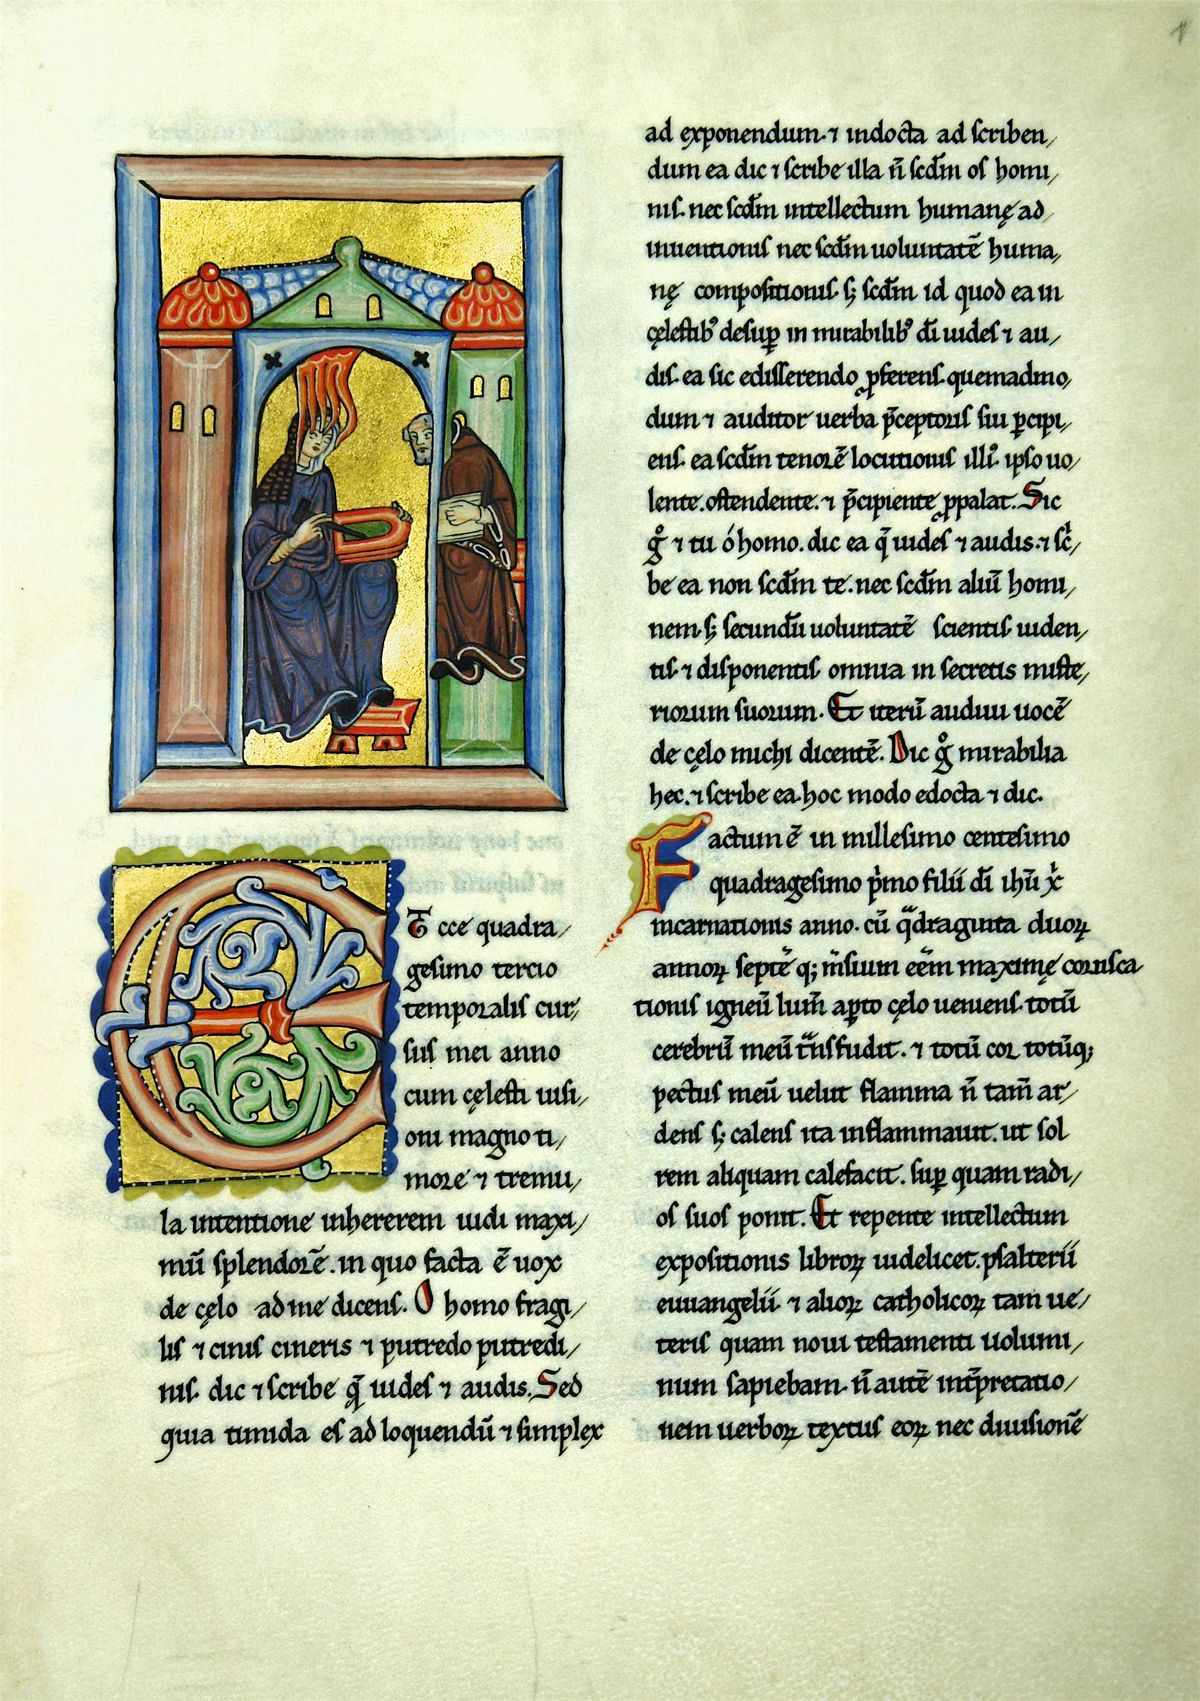 Et cce quadra/
gesimo tercio
temporalis cur/
sus mei anno
cum cęlesti uisi/
oni magno ti/
more ⁊ tremu/
la intentione inhererem uidi maxi/
mū splendorē. in quo facta ē uox
de cęlo ad me dicens. O homo fragi/
lis ⁊ cinis cineris ⁊ putredo putredi/
nis. dic ⁊ scribe q̄ uides ⁊ audis. Sed
quia timida es ad loquendū ⁊ simplex
ad exponendum. ⁊ indocta ad scriben/
dum ea dic ⁊ scribe illa n̄ scdm̄ os homi/
nis. nec scdm̄ intellectum humanę ad/
inuentionis nec scdm̄ uoluntatē huma/
nę compositionis. s; scdm̄ id quod ea in
cęlestibꝰ desup̄ in mirabilibꝰ dī uides ⁊ au/
dis. ea sic edisserendo ꝓferens. quemadmo/
dum ⁊ auditor uerba p̄ceptoris sui ꝑcipi/
ens. ea scdm̄ tenorē locutionis illiꝰ. ipso uo/
lente. ostendente. ⁊ p̄cipiente ꝓpalat. Sic
gͦ ⁊ tu ó homo. dic ea q̄ uides ⁊ audis. ⁊ scⁱ/
be ea non scdm̄ te. nec scdm̄ aliū homi/
nem. s; secundū uoluntatē scientis uiden/
tis ⁊ disponentis omnia in secretis miste/
riorum suorum. Et iterū audiui uocē
de cęlo michi dicentē. Dic gͦ mirabilia
hec. ⁊ scribe ea. hoc modo edocta ⁊ dic.
Factum ē in millesimo centesimo
quadragesimo pⁱmo filii dī ihū xⁱ
incarnationis anno. cū qᵃdraginta duoꝝ
annoꝝ septē q; m̄sium eēm maximę corusca
tionis igneū lum̄ aꝑto cęlo ueniens. totū
cerebrū meū tᵃnsfudit. ⁊ totū cor totūq;
pectus meū uelut flamma n̄ tam̄ ar/
dens s; calens ita inflammauit. ut sol
rem aliquam calefacit. suꝑ quam radi/
os suos ponit. Et repente intellectum
expositionis libroꝝ uidelicet. psalterii
euuangelii. ⁊ alioꝝ catholicoꝝ tam ue/
teris quam noui testamenti uolumi/
num sapiebam. n̄ autē int̄pretatio/
nem uerboꝝ textus eoꝝ nec diuisionē